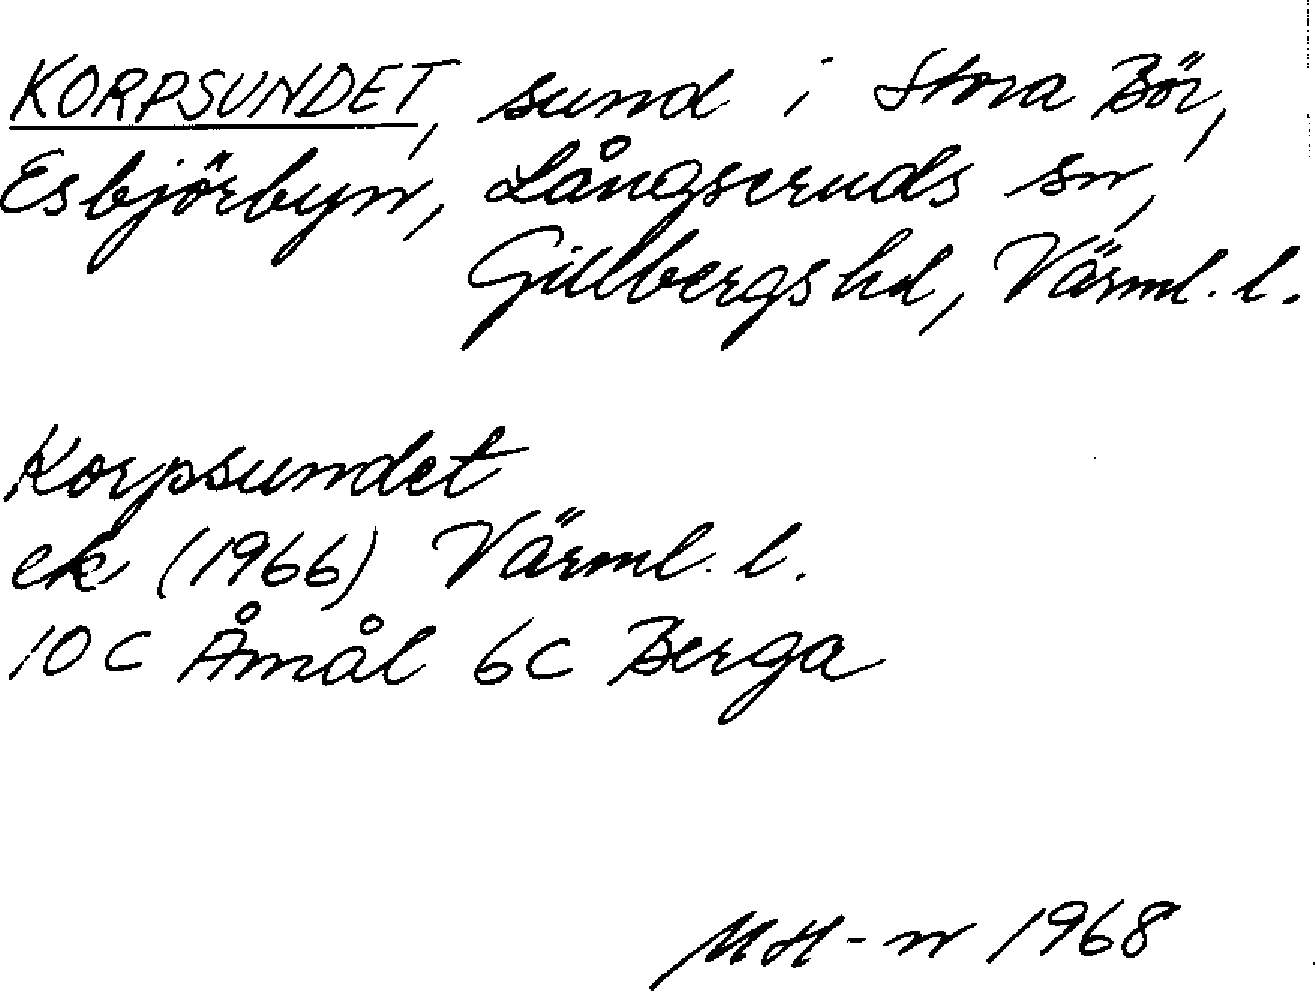 KORPSUNDET, sund i Stora Bör,
Esbjörbyn, Långseruds sn,
Gillbergs hd, Värml. l.
Korpsundet
ek (1966) Värml. l.
10 C Åmål 6 C Berga
MH-n 1968